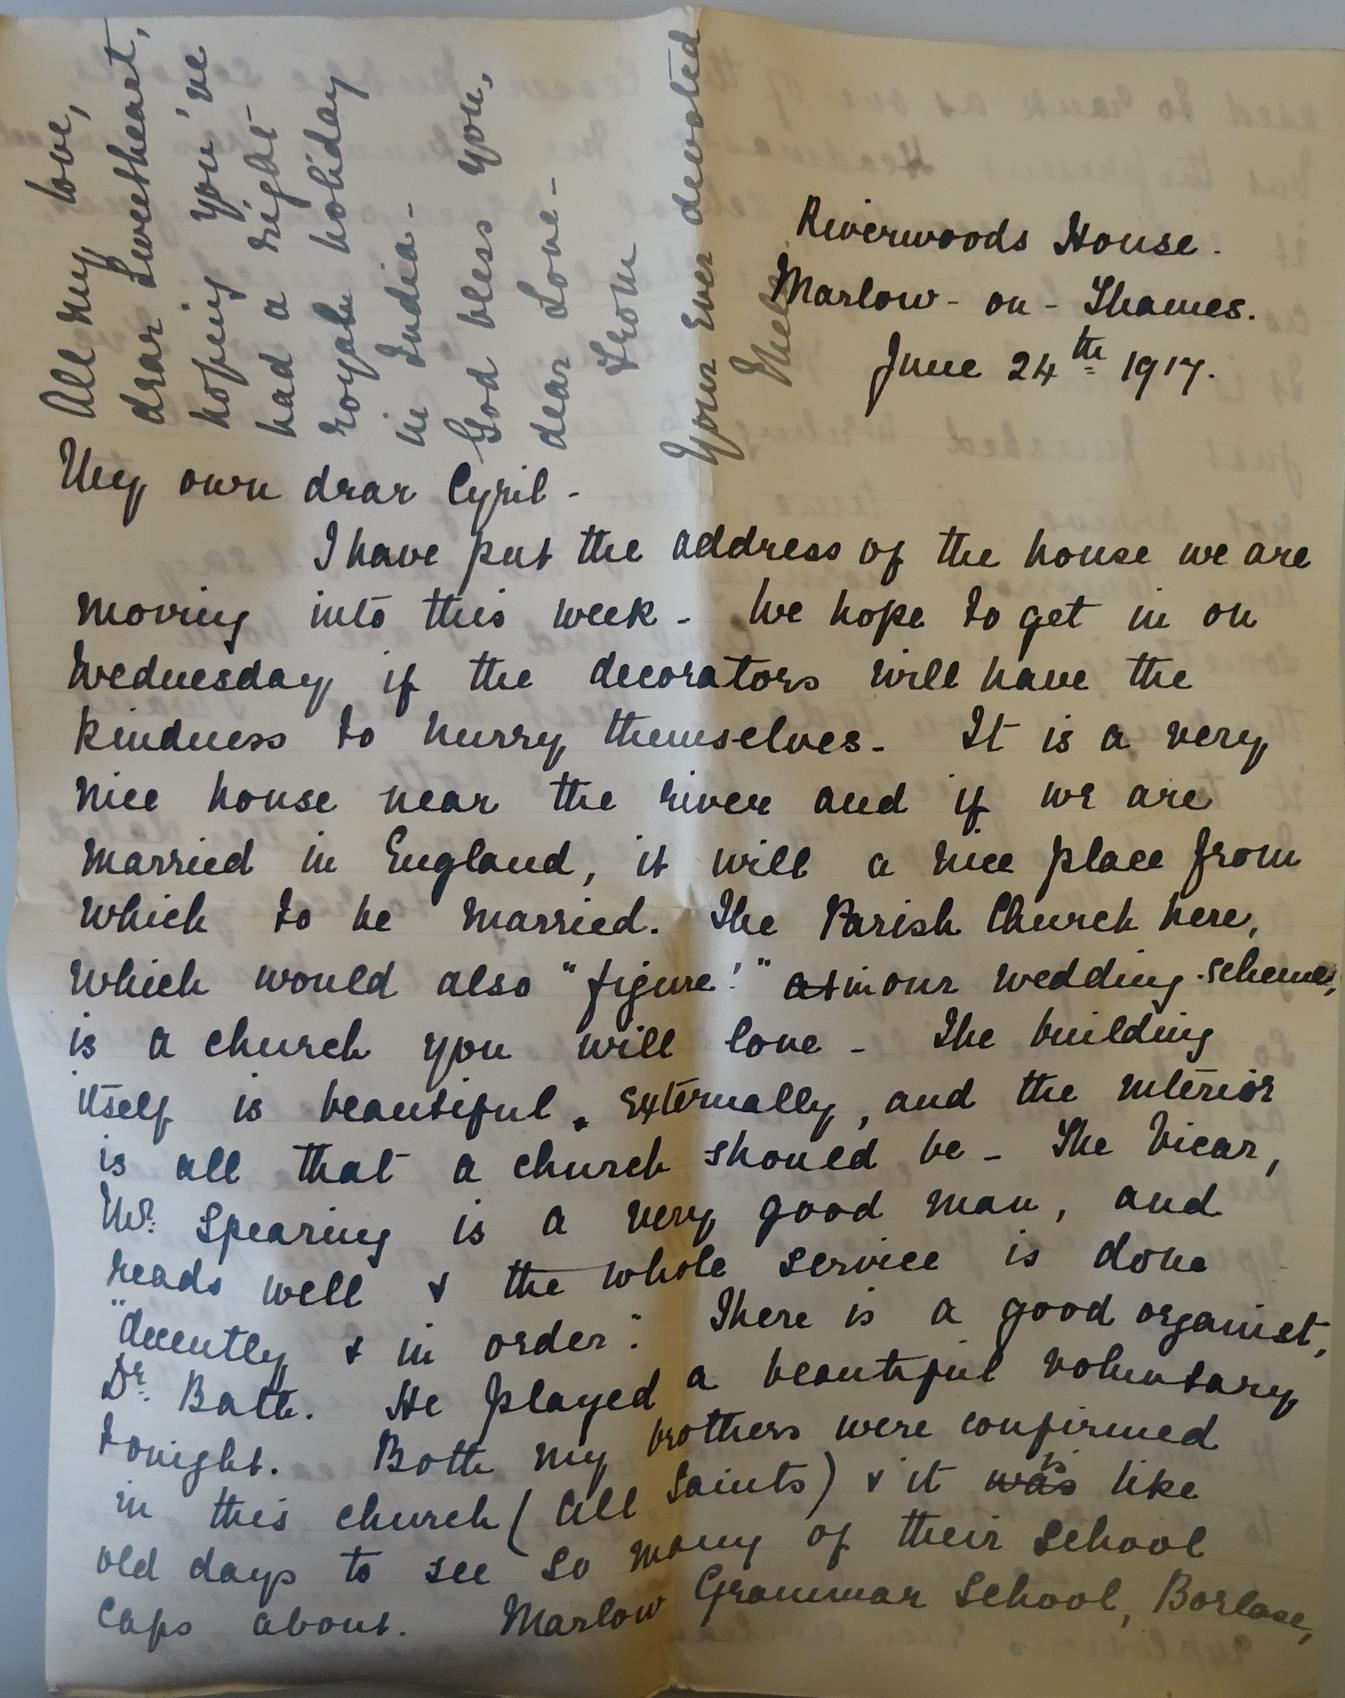 Riverwoods House.
Marlow - on - Thames.
June 24th 1917.
My own dear Cyril -
I have put the address of the house we are
moving into this week - We hope to get in on
Wednesday if the decorators will have the
kindness to hurry themselves - It is a very
nice house near the river and if we are
married in England, it will a nice place from
which to be married. The Parish Church here,
which would also "figure!" as in our wedding-schemes,
is a church you will love - The building
itself is beautiful, externally, and the interior
is all that a church should be - The Vicar,
Mr. Spearing is a very good man, and
reads well & the whole service is done
"decently & in order". There is a good organist,
Dr. Bath. He played a beautiful voluntary
tonight. Both my brothers were confirmed
in this church (All Saints) & it was is like
old days to see so many of their school
caps about. Marlow Grammar School, Borlase,
All my love,
dear Sweetheart,
hoping you've
had a right
royale holiday
in India -
God bless you,
dear Love -
From
Your ever devoted